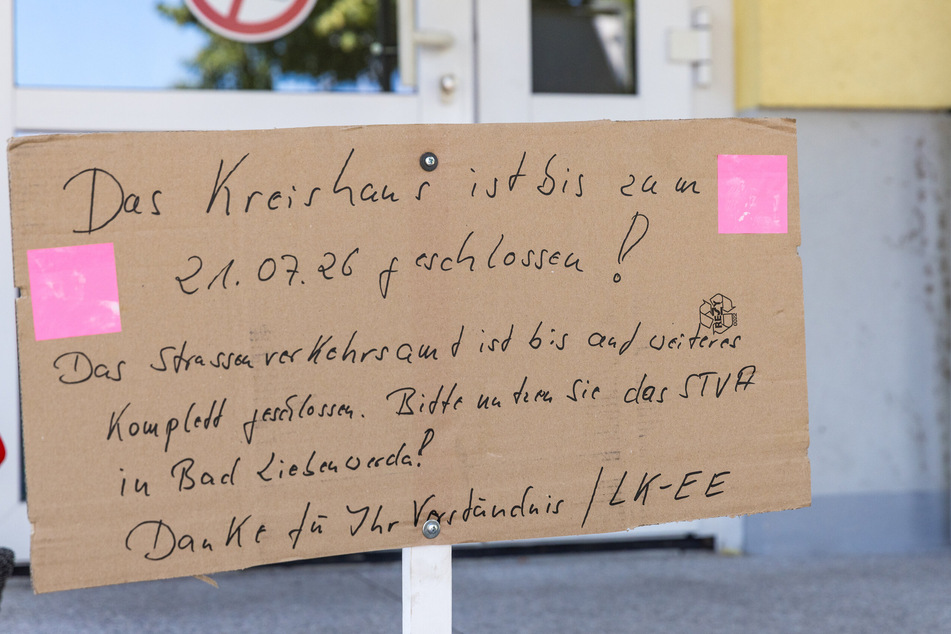 Das Kreishaus ist bis zum
21.07.26 geschlossen!
RESY
Das Strassenverkehrsamt ist bis auf weiteres
Komplett geschlossen. Bitte nutzen Sie das STVA
in Bad Liebenwerda!
Danke für Ihr Verständnis / LK-EE